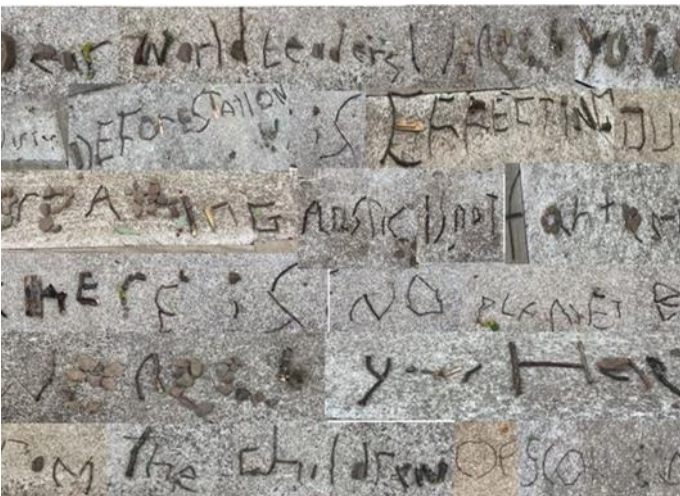 Dear World Leaders We Need You
DEFORESTATION is EFFECTING OU
PLASTIC is NOT Fantas
tHERE is NO PLANET B
We Need your He
From The children OF SCO